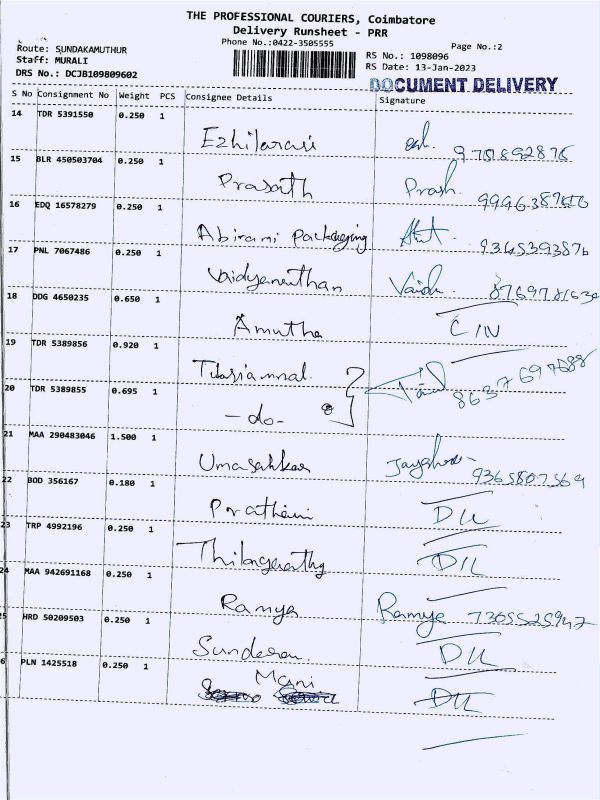 THE PROFESSIONAL COURIERS, Coimbatore
Delivery Runsheet - PRR
Phone No.:0422-3505555
Page No.:2
Route: SUNDAKAMUTHUR
Staff: MURALI
DRS No.: DCJB109809602
RS No.: 1098096
RS Date: 13-Jan-2023
DOCUMENT DELIVERY
S No Consignment No Weight PCS Consignee Details Signature
14 TDR 5391550 0.250 1
Ezhilarasi 9751892876
15 BLR 450503704 0.250 1
Prasath Prash.
16 EDQ 16578279 0.250 1
Abirami Packaging 9345393876
17 PNL 7067486 0.250 1
Vaidyanathan Vaidh.
18 DDG 4650235 0.650 1
Amutha C/N
19 TDR 5389856 0.920 1
Tulasiammal. 8637697688
20 TDR 5389855 0.695 1
-do-
21 MAA 290483046 1.500 1
Umasankar 9365807569
22 BOD 356167 0.180 1
D/L
23 TRP 4992196 0.250 1
D/L
24 MAA 942691168 0.250 1
Ramya Ramya 7305525947
HRD 50209503 0.250 1
D/L
6 PLN 1425518 0.250 1
Mani
D/L